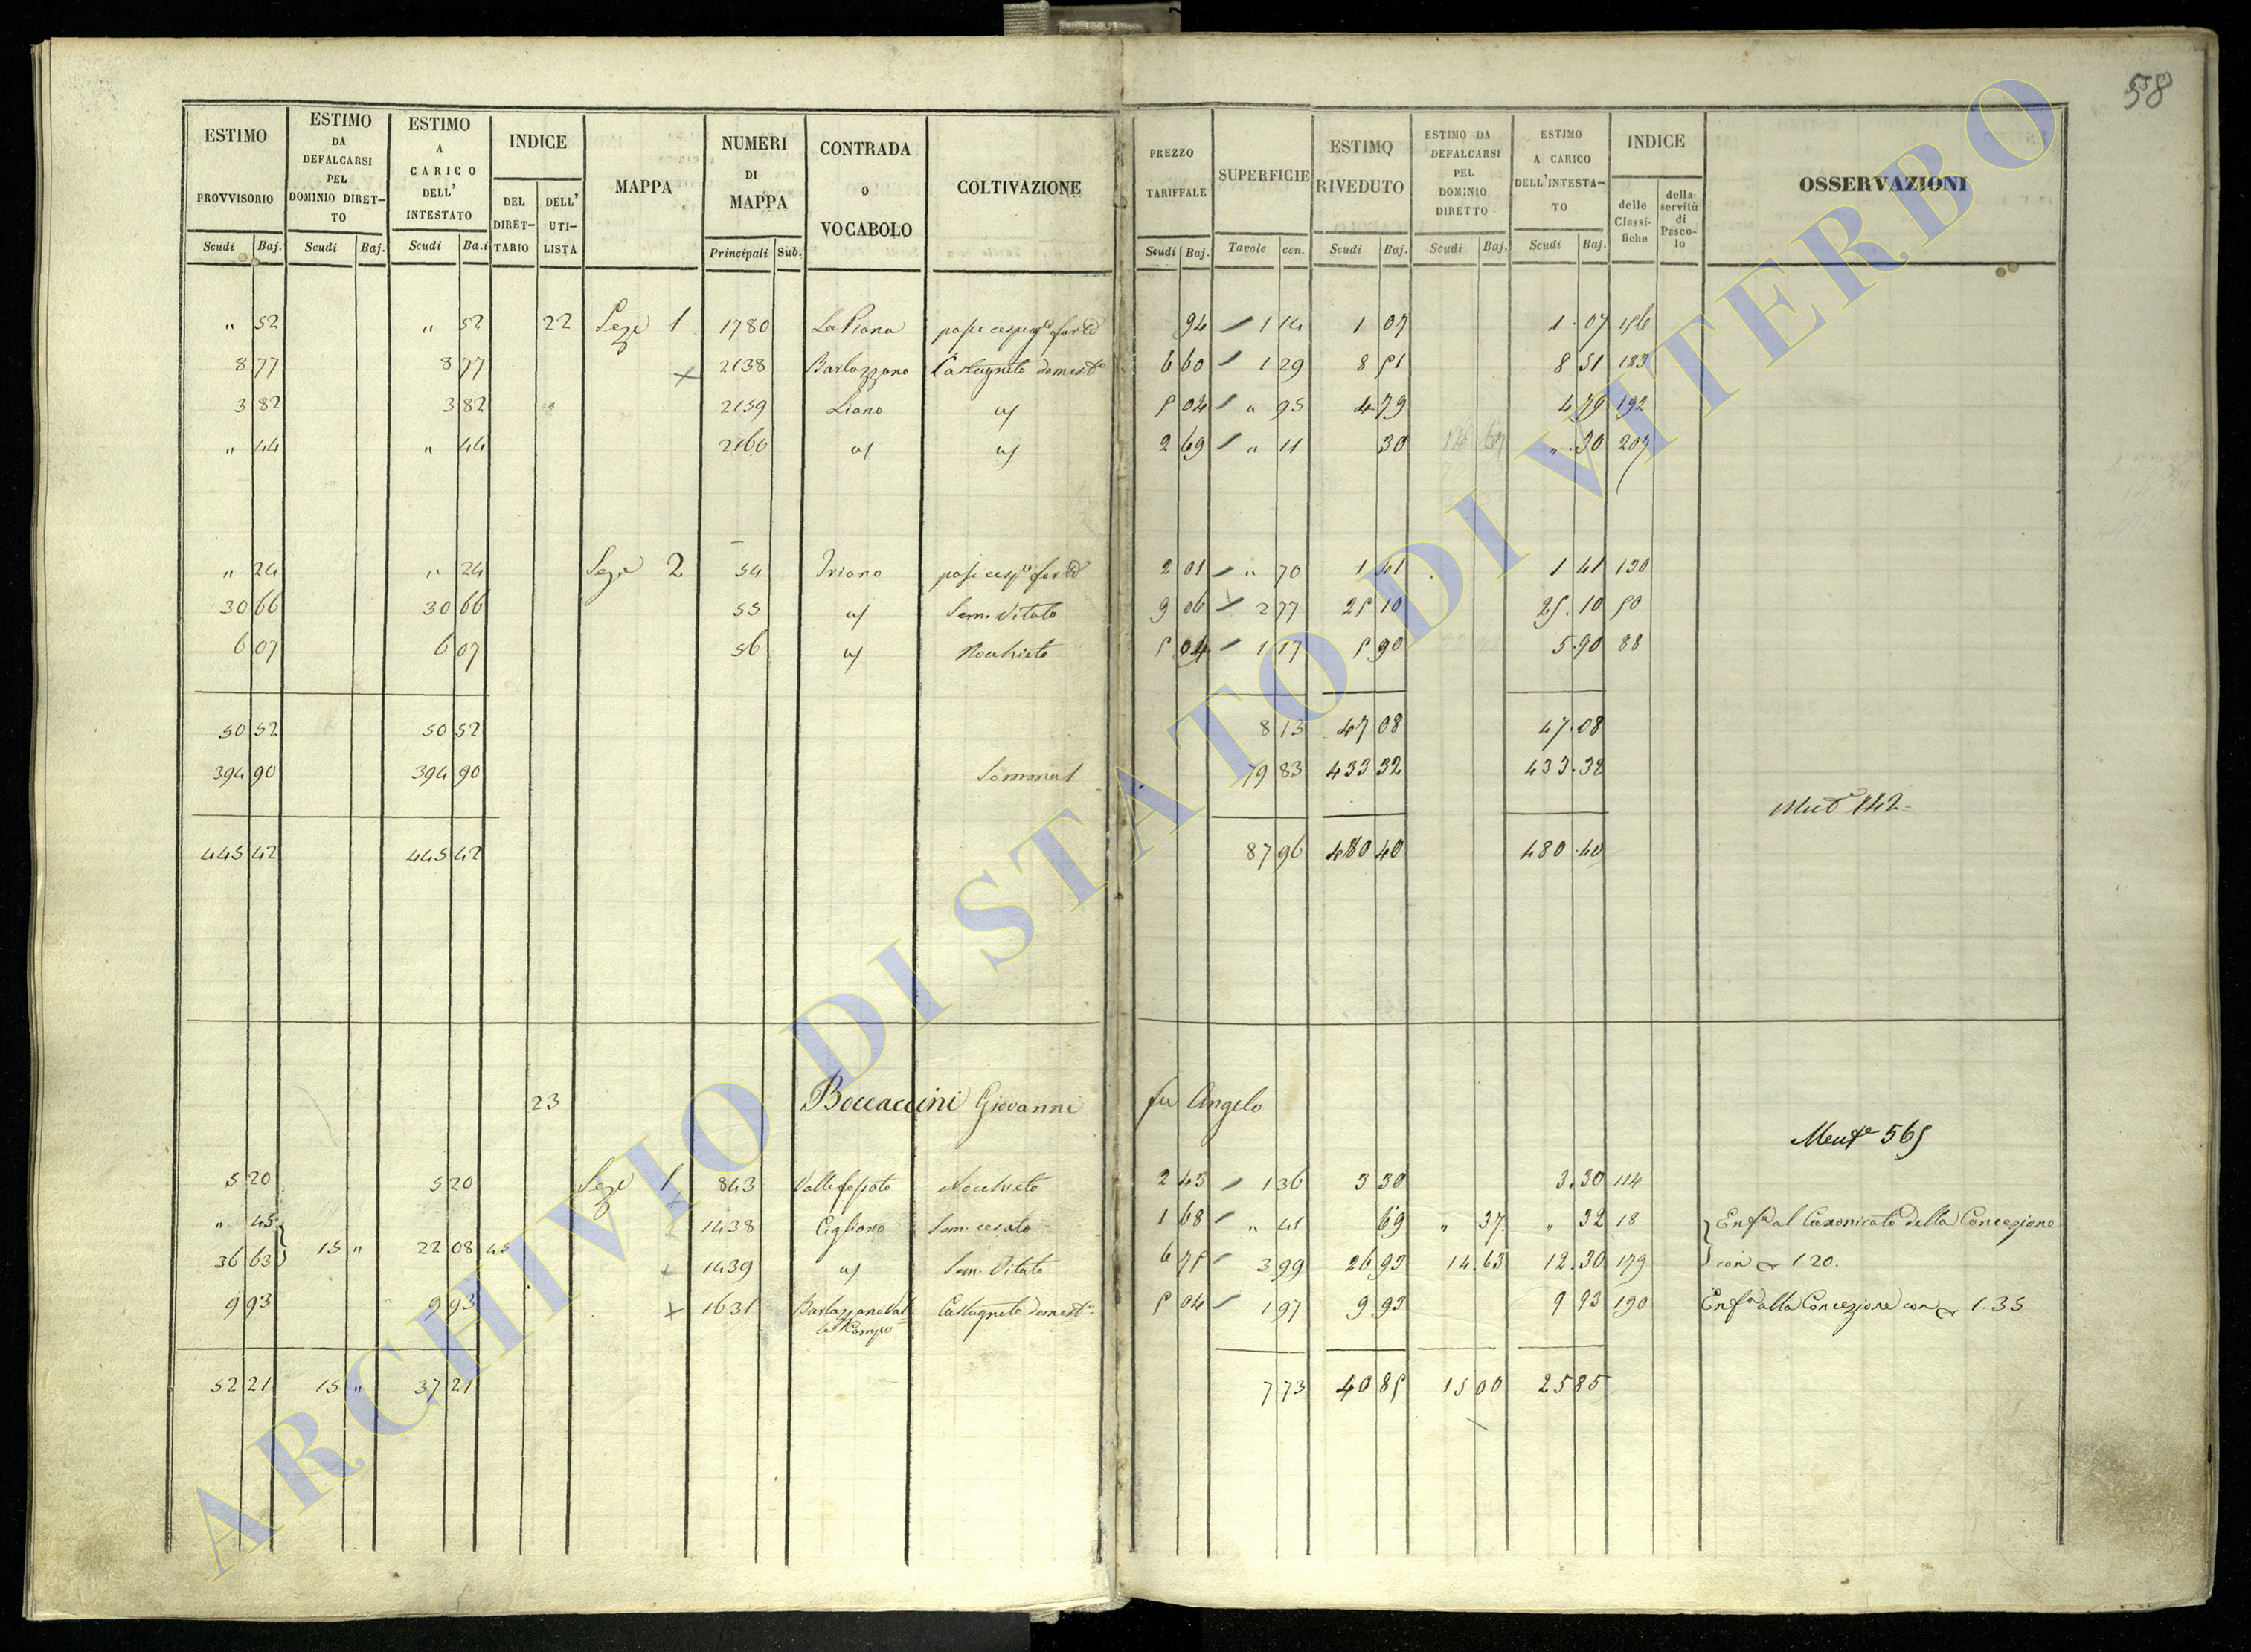 58
ESTIMO PROVVISORIO Scudi Baj. ESTIMO DA DEFALCARSI PEL DOMINIO DIRET-TO Scudi Baj. ESTIMO A CARICO DELL' INTESTATO Scudi Ba.i INDICE DEL DIRET-TARIO DELL' UTI-LISTA MAPPA NUMERI DI MAPPA Principali Sub. CONTRADA o VOCABOLO COLTIVAZIONE PREZZO TARIFFALE Scudi Baj. SUPERFICIE Tavole cen. ESTIMO RIVEDUTO Scudi Baj. ESTIMO DA DEFALCARSI PEL DOMINIO DIRETTO Scudi Baj. ESTIMO A CARICO DELL'INTESTA-TO Scudi Baj. INDICE delle Classi-fiche della servitù di Pasco-lo OSSERVAZIONI
" 52 " 52 22 Sez.e 1 1780 La Piana 94 1 14 1 07 1 . 07 156
8 77 8 77 2138 Barlozzano Castagneto domest.o 6 60 1 29 8 51 8 51 183
3 82 3 82 2159 Liano 5 04 " 95 4 79 4 79 192
" 44 " 44 2160 2 69 " 11 30 " . 30 207
" 24 " 24 Sez.e 2 54 Iriano 2 01 " 70 1 41 1 41 130
30 66 30 66 55 Sem. Vitato 9 06 2 77 25 10 25 . 10 50
6 07 6 07 56 Nochieto 5 04 1 17 5 90 5 . 90 88
50 52 50 52 8 13 47 08 47 . 08
394 90 394 90 79 83 433 32 433 . 32
Mut.e 142
445 42 445 42 87 96 480 40 480 . 40
23 Boccaccini Giovanni fu Angelo
Mut.e 565
5 20 5 20 Sez.e 1 843 Vallefossato Nochieto 2 43 1 36 3 30 3 . 30 114
" 45 1438 Cigliano Sem. cesato 1 68 " 41 69 " 37 " 32 18 Enf.a al Canonicato della Concezione
36 63 15 " 22 08 45 1439 Sem. Vitato 6 75 3 99 26 93 14 . 63 12 . 30 179 con 1 20.
9 93 9 93 1631 Barlozzano Castagneto domest.o 5 04 1 97 9 93 9 93 190 Enf.a alla Concezione con 1 . 35
52 21 15 " 37 21 7 73 40 85 15 00 25 85
ARCHIVIO DI STATO DI VITERBO